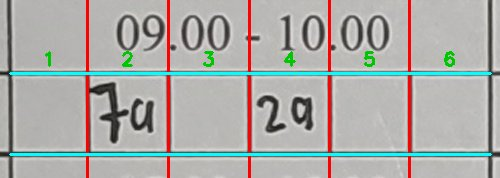 09.00 - 10.00
1 2 3 4 5 6
7a 2a